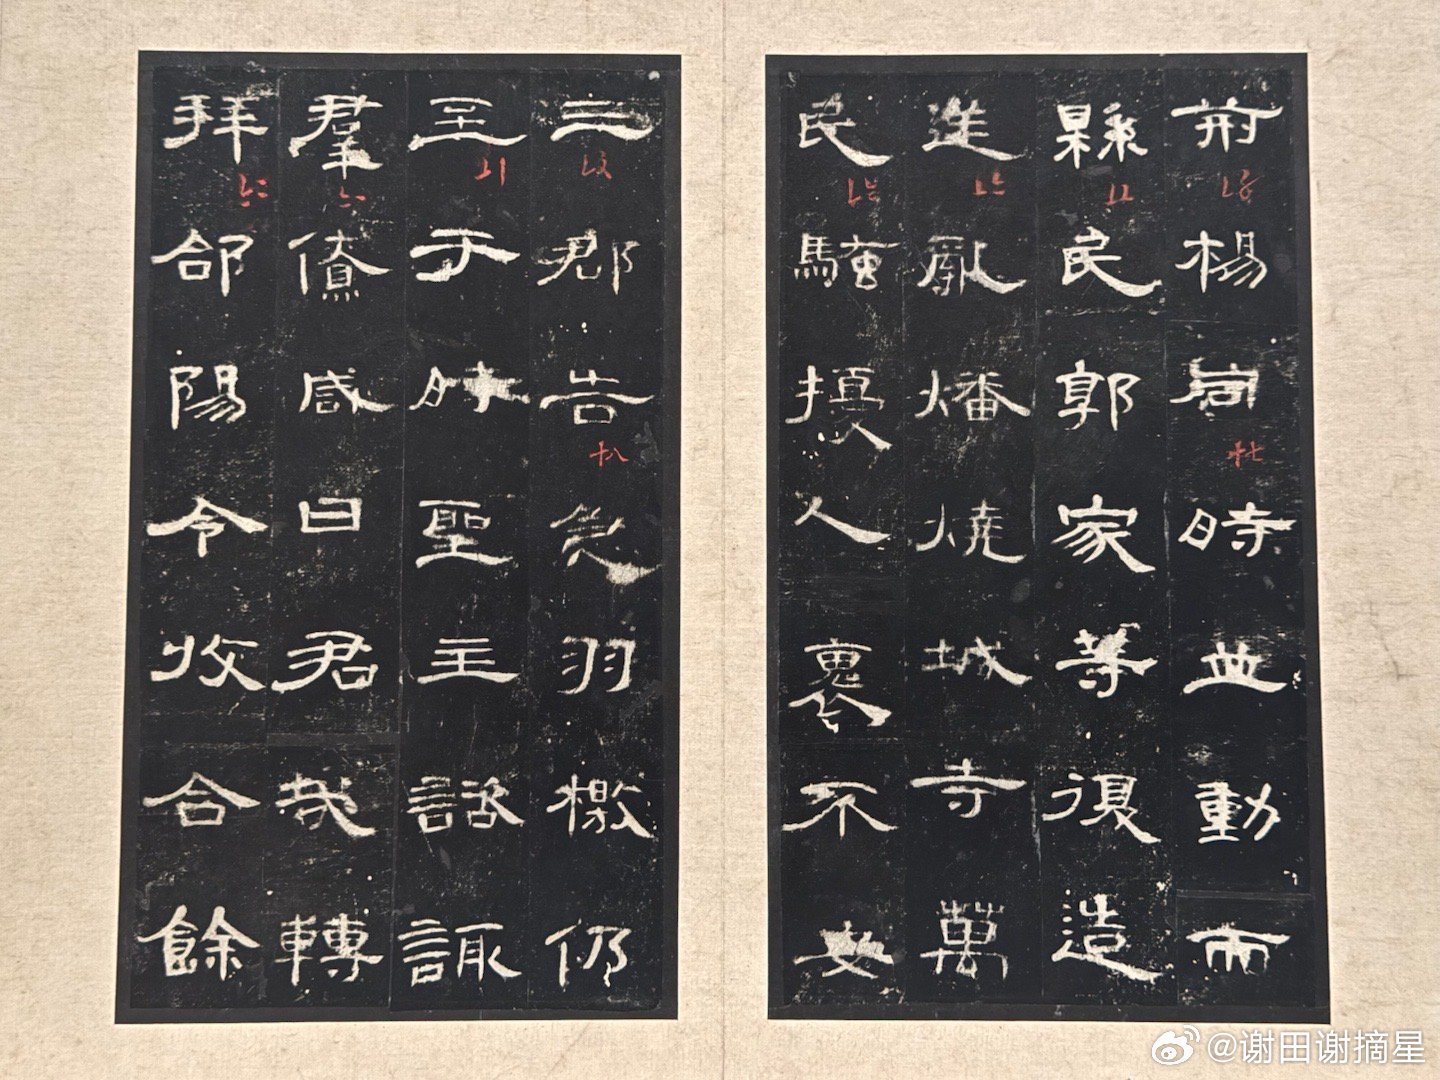 荊楊同時並動而
縣民郭家等復造
逆亂燔燒城寺萬
民騷擾人裹不安
三郡告急羽檄仍
至于時聖主諮諏
羣僚咸曰君哉轉
拜郃陽令收合餘
@谢田谢摘星